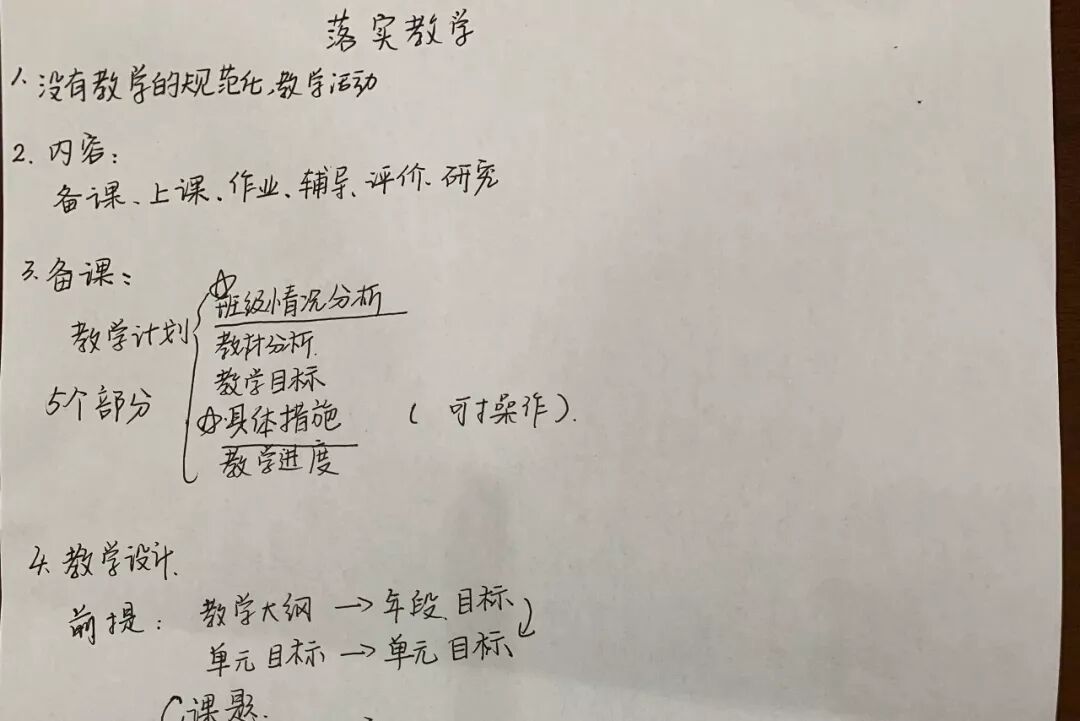 落实教学
1. 没有教学的规范化,教学活动
2. 内容:
备课、上课、作业、辅导、评价、研究
3. 备课:
教学计划
5个部分
☆班级情况分析
教材分析.
教学目标
☆具体措施 (可操作).
教学进度
4. 教学设计.
前提: 教学大纲 → 年段目标
单元目标 → 单元目标
课题.